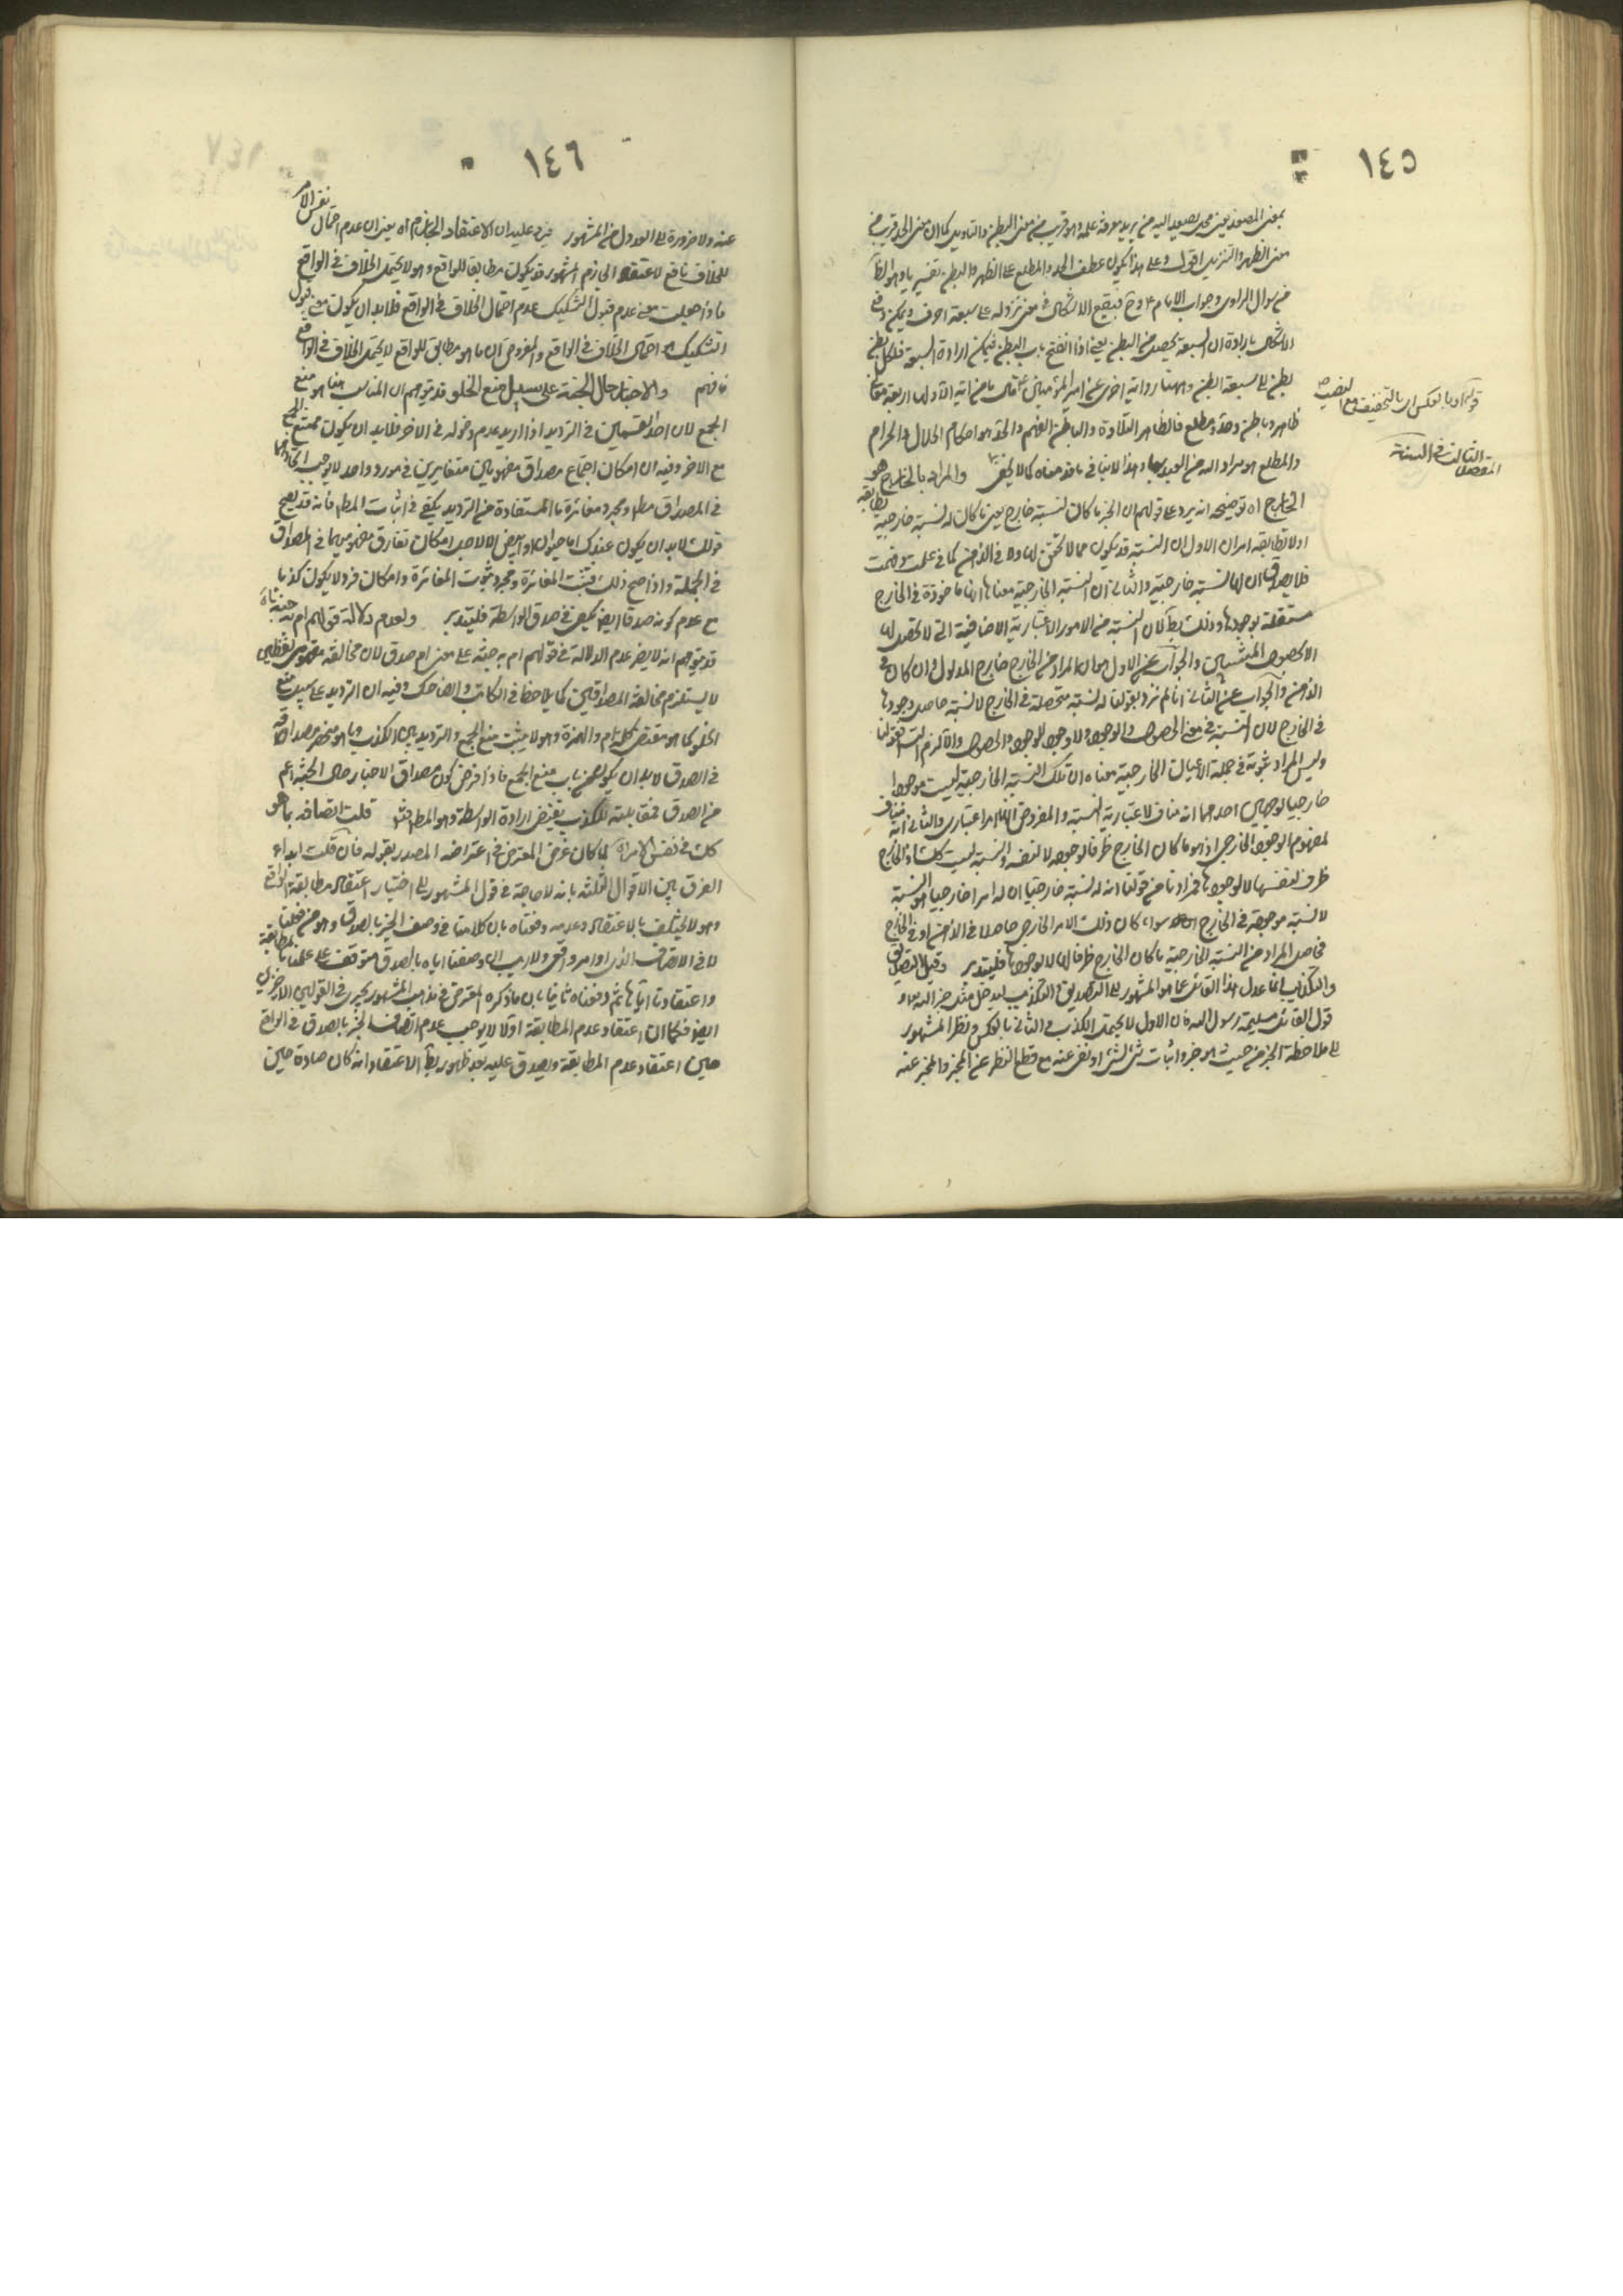 ١٤٥
بمعنى المصعد يعني محل يصعد اليه من يريد معرفة علمه وهو قريب من معنى البطن والتاويل كما ان معنى الحد قريب من
معنى الظهر والتنزيل اقول وعلى هذا يكون عطف الحد والمطلع على الظهر والبطن تفسيريا وهو الظ
من سوال الراوي وجواب الامام ع وح فيبقى الاشكال في معنى نزوله على سبعة احرف ويمكن دفع
الاشكال بارادة ان السبعة يحصل من البطن يعني اذا انفتح باب البطن فيمكن ارادة السبعة فلكل بطن
بطن الى سبعة ابطن وههنا رواية اخرى عن امير المؤمنين ع قال ما من اية الا ولها اربعة معان
ظاهر وباطن وحد ومطلع فالظاهر التلاوة والباطن الفهم والحد هو احكام الحلال والحرام
والمطلع هو مراد الله من العبد بها وهذا لا ينافي ما قدمناه كما لا يخفى والمراد بالخارج هو
الخارج اه توضيحه انه يرد على قولهم ان الخبر ما كان لنسبته خارج يعني ما كان له نسبة خارجية تطابقه
اولا تطابقه امران الاول ان النسبة قد يكون مما لا تحقق لها الا في الذهن كما في علمت وفهمت
فلا يصدق ان لها نسبة خارجية والثاني ان النسبة الخارجية معناها انها ماخوذة في الخارج
مستقلة بوجودها وذلك بط لان النسبة من الامور الاعتبارية الاضافية التي لا تحصل لها
الا بحصول المنتسبين والجواب عن الاول هو ان المراد من الخارج خارج المدلول وان كان في
الذهن والجواب عن الثاني انا لم نرد بقولنا له نسبة متحصلة في الخارج لا نسبة حاصل وجودها
في الخارج لان
وليس المراد ثبوته في جملة الاعيان الخارجية معناه ان تلك النسبة الخارجية ليست موجودا
خارجيا لوجهين احدهما انه مناف لاعتبارية النسبة والمفروض انها امر اعتباري والثاني انه مناف
لمفهوم الوجود الخارجي اذ هو ما كان الخارج ظرفا لوجوده لا لنفسه والنسبة ليست كذلك اذ الخارج
ظرف لنفسها لا لوجودها فمرادنا من قولنا انه له نسبة خارجية ان له امرا خارجيا هو النسبة
لا نسبة موجودة في الخارج سواء كان ذلك الامر الخارجي حاصلا في الذهن او في الخارج
فحاصل المراد من النسبة الخارجية ما كان الخارج ظرفا لها لا لوجودها فليتدبر وقيل التصديق
والتكذيب انما عدل هذا القائل عما هو المشهور الى التصديق والتكذيب ليدخل مثل خبر الله و
قول القائل مسيلمة رسول الله فان الاول لا يحتمل الكذب والثاني بالعكس ونظر المشهور
الى ملاحظة الخبر من حيث هو خبر واثبات شئ لشئ او نفي عنه مع قطع النظر عن المخبر والمخبر عنه
قوله او بالعكس اي بالتخفيف مع النصب
الثالث في السنة
المقصد
١٤٦
عنه ولا ضرورة الى العدول من المشهور فيرد عليه ان الاعتقاد الجازم اه يعني ان عدم احتمال نفس الامر
للخلاف نافع لاعتقاد الجازم المشهور قد يكون مطابقا للواقع وهو لا يحتمل الخلاف في الواقع
فاذا جعلت معنى عدم قبول التشكيك عدم احتمال الخلاف في الواقع فلا بد ان يكون معنى قبول
التشكيك هو احتمال الخلاف في الواقع والمفروض ان ما هو مطابق للواقع لا يحتمل الخلاف في الواقع
فافهم والاخبار حال الجنة على سبيل منع الخلو قد يتوهم ان المناسب هنا هو منع
الجمع لان احد القسمين في الترديد اذا اريد عدم دخوله في الاخر فلا بد ان يكون ممتنع الجمع
مع الاخر وفيه ان امكان اجتماع مصداق مفهومين متغايرين في مورد واحد لا يوجب اتحادهما
في المصداق مطلقا ومجرد مغايرة ما المستفادة من الترديد يكفي في اثبات المط فانه قد يصح
قولك لا بد ان يكون عندك اما حيوان او ابيض الا لاجل امكان تفارق مفهوميهما في المصداق
في الجملة واذا صح ذلك فيثبت المغايرة ومجرد ثبوت المغايرة وامكان فرد لا يكون كذبا
مع عدم كونه صدقا ايضا يكفي في صدق الواسطة فليتدبر ولعدم دلالة قولهم ام به جنة
قد يتوهم انه لا يضر عدم الدلالة في قولهم ام به جنة على معنى ام صدق لان مخالفة مفهومي لفظي
لا يستلزم مخالفة المصداقين كما يلاحظ في الكاتب والضاحك وفيه ان الترديد على سبيل منع
الخلو كما هو مقتضى كلمة ام والهمزة وهو لا يثبت منع الجمع والترديد بين الكذب وما هو منحصر مصداقه
في الصدق لا بد ان يكون من باب منع الجمع فاذا فرض كون مصداق الاخبار حال الجنة اعم
من الصدق فمقابلته للكذب يقتضي ارادة الواسطة وهو المط قلت اتصافه بما هو
كك في نفس الامر اه لما كان غرض المعترض في اعتراضه المصدر بقوله فان قلت ابداء
الفرق بين الاقوال الثلثة بانه لا حاجة في قول المشهور الى اختيار اعتقاد مطابقة الواقع
وهو لا يختلف بالاعتقاد وعدمه دفعناه بان كلامنا في وصف الخبر بالصدق وهو من فعلنا
لا في الاتصاف الذي هو امر واقعي ولا ريب ان وصفنا اياه بالصدق متوقف على علمنا بالمطابقة
واعتقادنا اياها ثم دفعناه ثانيا بان ما ذكره المعترض في مذهب المشهور يجري في القولين الاخيرين
ايضا فكما ان اعتقاد عدم المطابقة اولا لا يوجب عدم اتصاف الخبر بالصدق في الواقع
حين اعتقاد عدم المطابقة ويصدق عليه بعد ظهور بط الاعتقاد انه كان صادقا حين